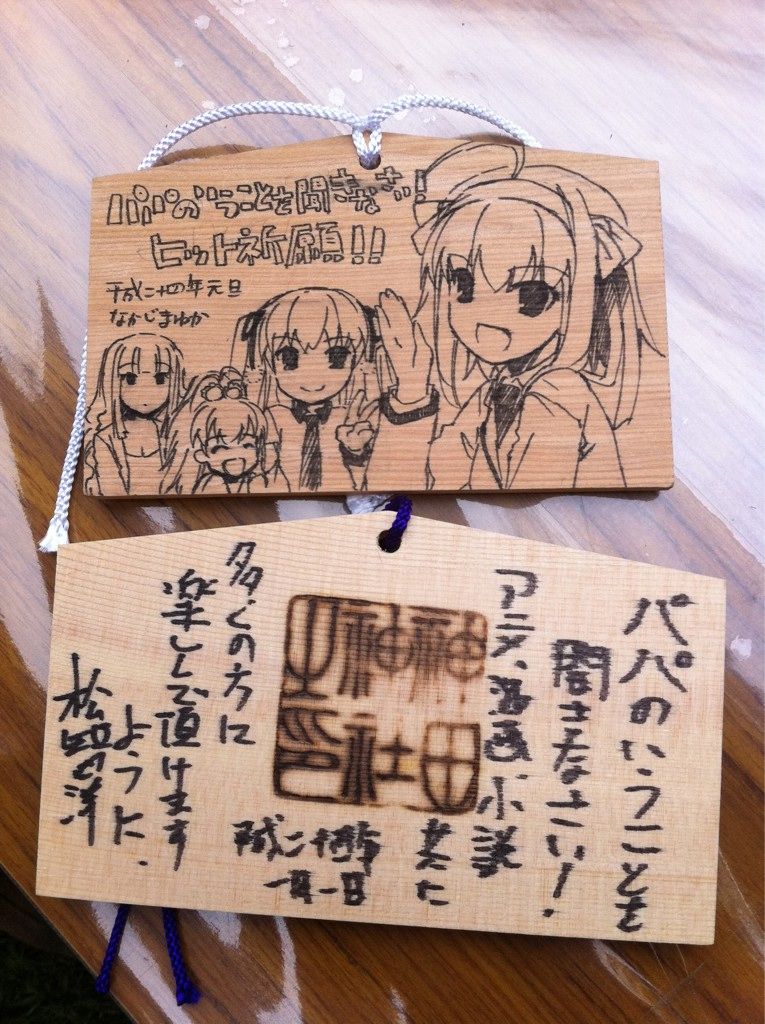 パパのいうことを聞きなさい!
ヒット祈願!!
平成二十四年元旦
なかじまゆか
パパのいうことを
聞きなさい!
アニメ、漫画、小説
共に
神田
神社
之印
多くの方に
楽しんで頂けます
ように、
平成二十四年
一月一日
松智洋